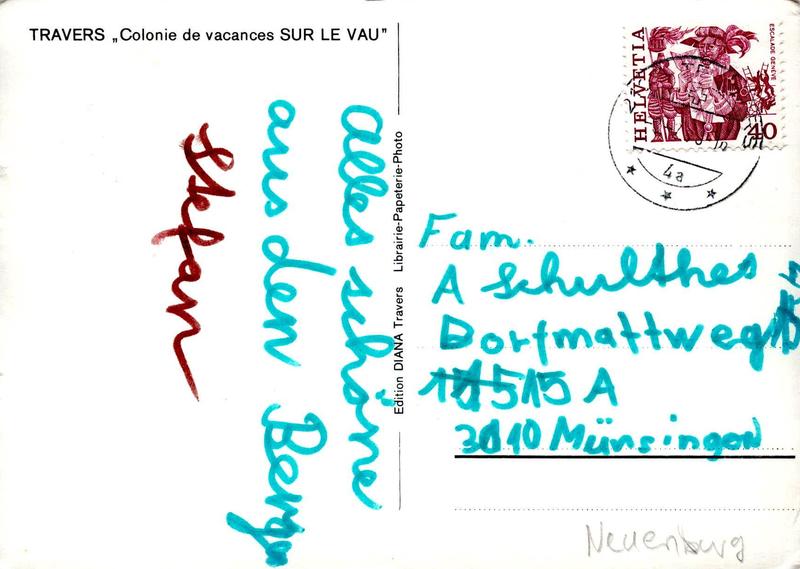 TRAVERS „Colonie de vacances SUR LE VAU"
alles schöne
aus den Berge
Stefan
Edition DIANA Travers Librairie-Papeterie-Photo
HELVETIA
ESCALADE GENÈVE
40
4a
Fam.
A Schulthes
Dorfmattweg
15 A
3110 Münsingen
Neuenburg